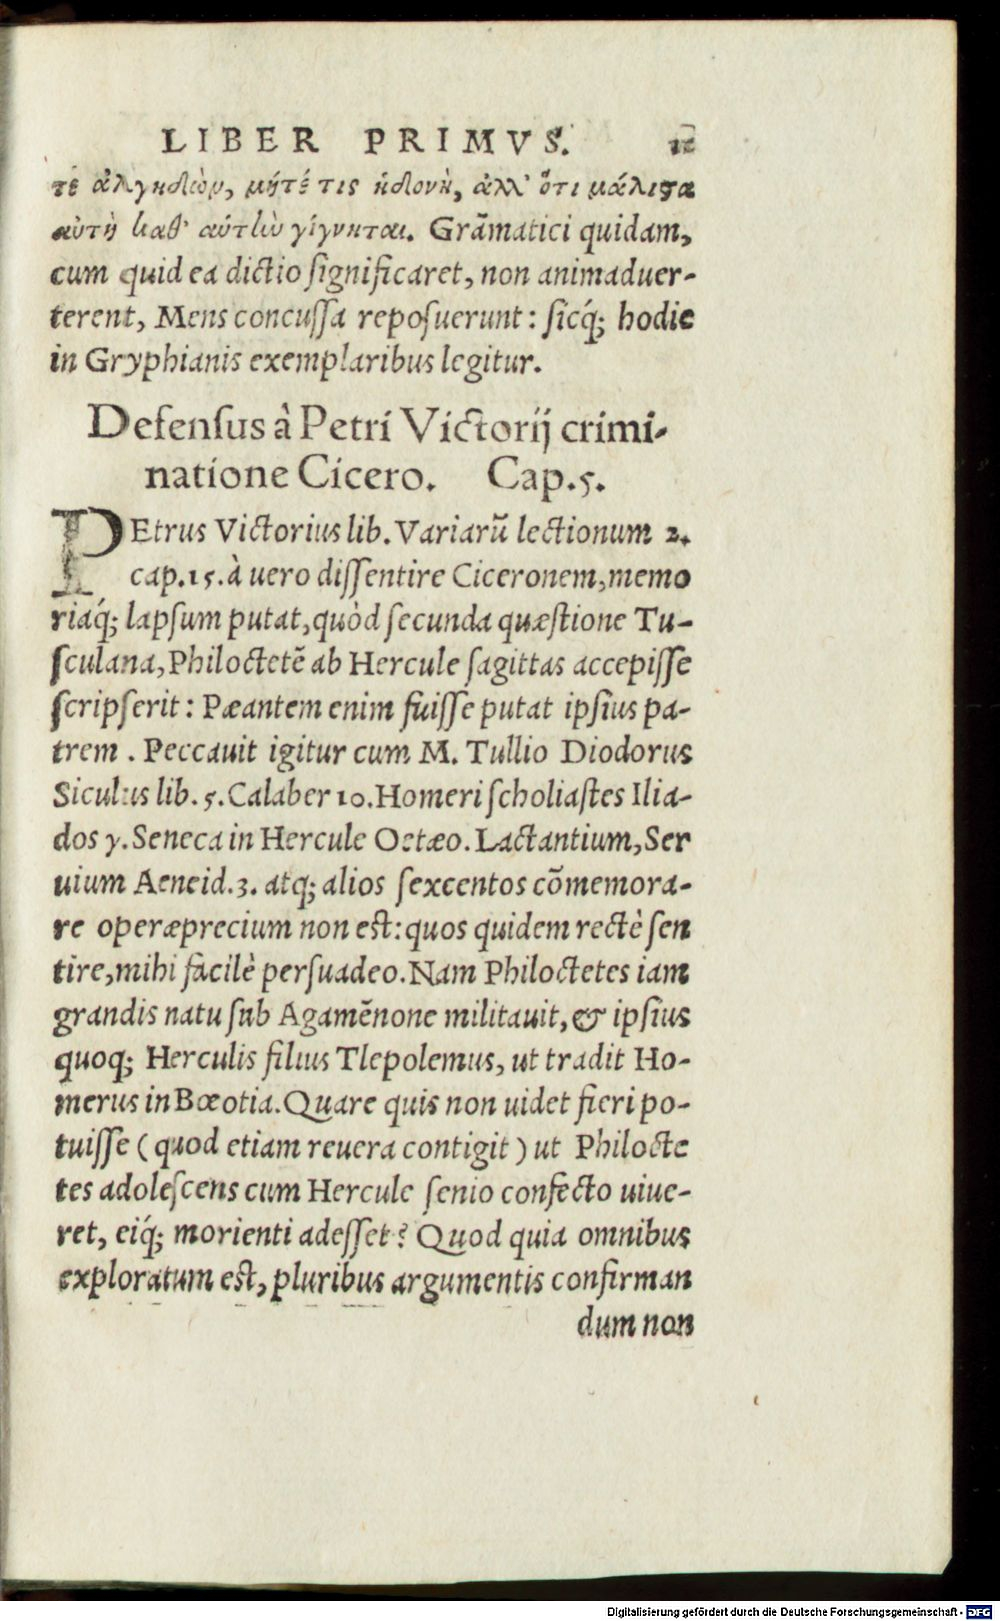 LIBER PRIMVS. 12
τὲ ἀλγηδὼν, μήτέ τις ἡδονὴ, ἀλλ' ὅτι μάλιϛα
αὐτὴ καθ' αὑτὴν γίγνηται. Grãmatici quidam,
cum quid ea dictio significaret, non animaduer-
terent, Mens concussa reposuerunt: sicq́; hodie
in Gryphianis exemplaribus legitur.
Defensus à Petri Victorij crimi-
natione Cicero. Cap. 5.
PEtrus Victorius lib. Variarũ lectionum 2.
cap. 15. à uero dissentire Ciceronem, memo
riaq́; lapsum putat, quòd secunda quæstione Tu-
sculana, Philoctetẽ ab Hercule sagittas accepisse
scripserit: Pæantem enim fuisse putat ipsius pa-
trem. Peccauit igitur cum M. Tullio Diodorus
Siculus lib. 5. Calaber 10. Homeri scholiastes Ilia-
dos γ. Seneca in Hercule Oetæo. Lactantium, Ser
uium Aeneid. 3. atq; alios sexcentos cõmemora-
re operæprecium non est: quos quidem rectè sen
tire, mihi facilè persuadeo. Nam Philoctetes iam
grandis natu sub Agamẽnone militauit, & ipsius
quoq; Herculis filius Tlepolemus, ut tradit Ho-
merus in Bœotia. Quare quis non uidet fieri po-
tuisse (quod etiam reuera contigit) ut Philocte
tes adolescens cum Hercule senio confecto uiue-
ret, eiq́; morienti adesset? Quod quia omnibus
exploratum est, pluribus argumentis confirman
dum non
Digitalisierung gefördert durch die Deutsche Forschungsgemeinschaft - DFG